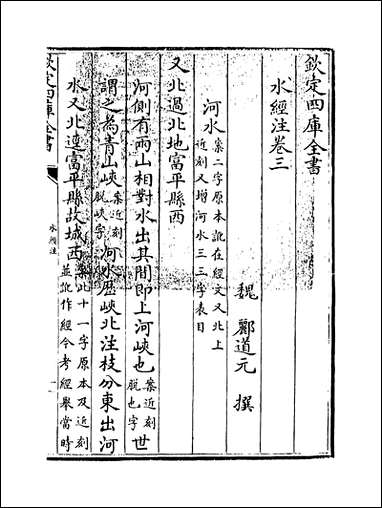 欽定四庫全書
水經注卷三
魏 酈道元 撰
河水案二字原本訛在經文又北上
近刻又增河水三三字表目
又北過北地富平縣西
河側有兩山相對水出其間即上河峽也案近刻脱也字世
謂之為青山峽案近刻脱峽字河水歷峽北注枝分東出河
水又北逕富平縣故城西案此十一字原本及近刻並訛作經今考經舉當時
欽定四庫全書
水經注
一